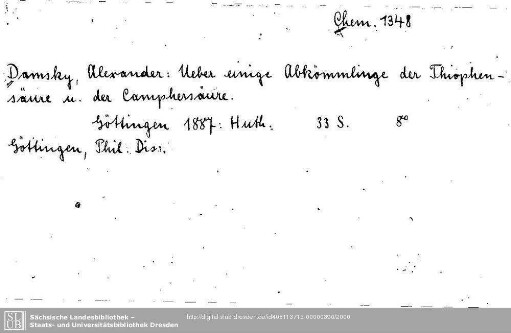 Chem. 1348
Damsky, Alexander: Ueber einige Abkömmlinge der Thiophen-
säure u. der Camphersäure.
Göttingen 1887: Huth. 33 S. 8°
Göttingen, Phil. Diss.
SLUB
Sächsische Landesbibliothek –
Staats- und Universitätsbibliothek Dresden